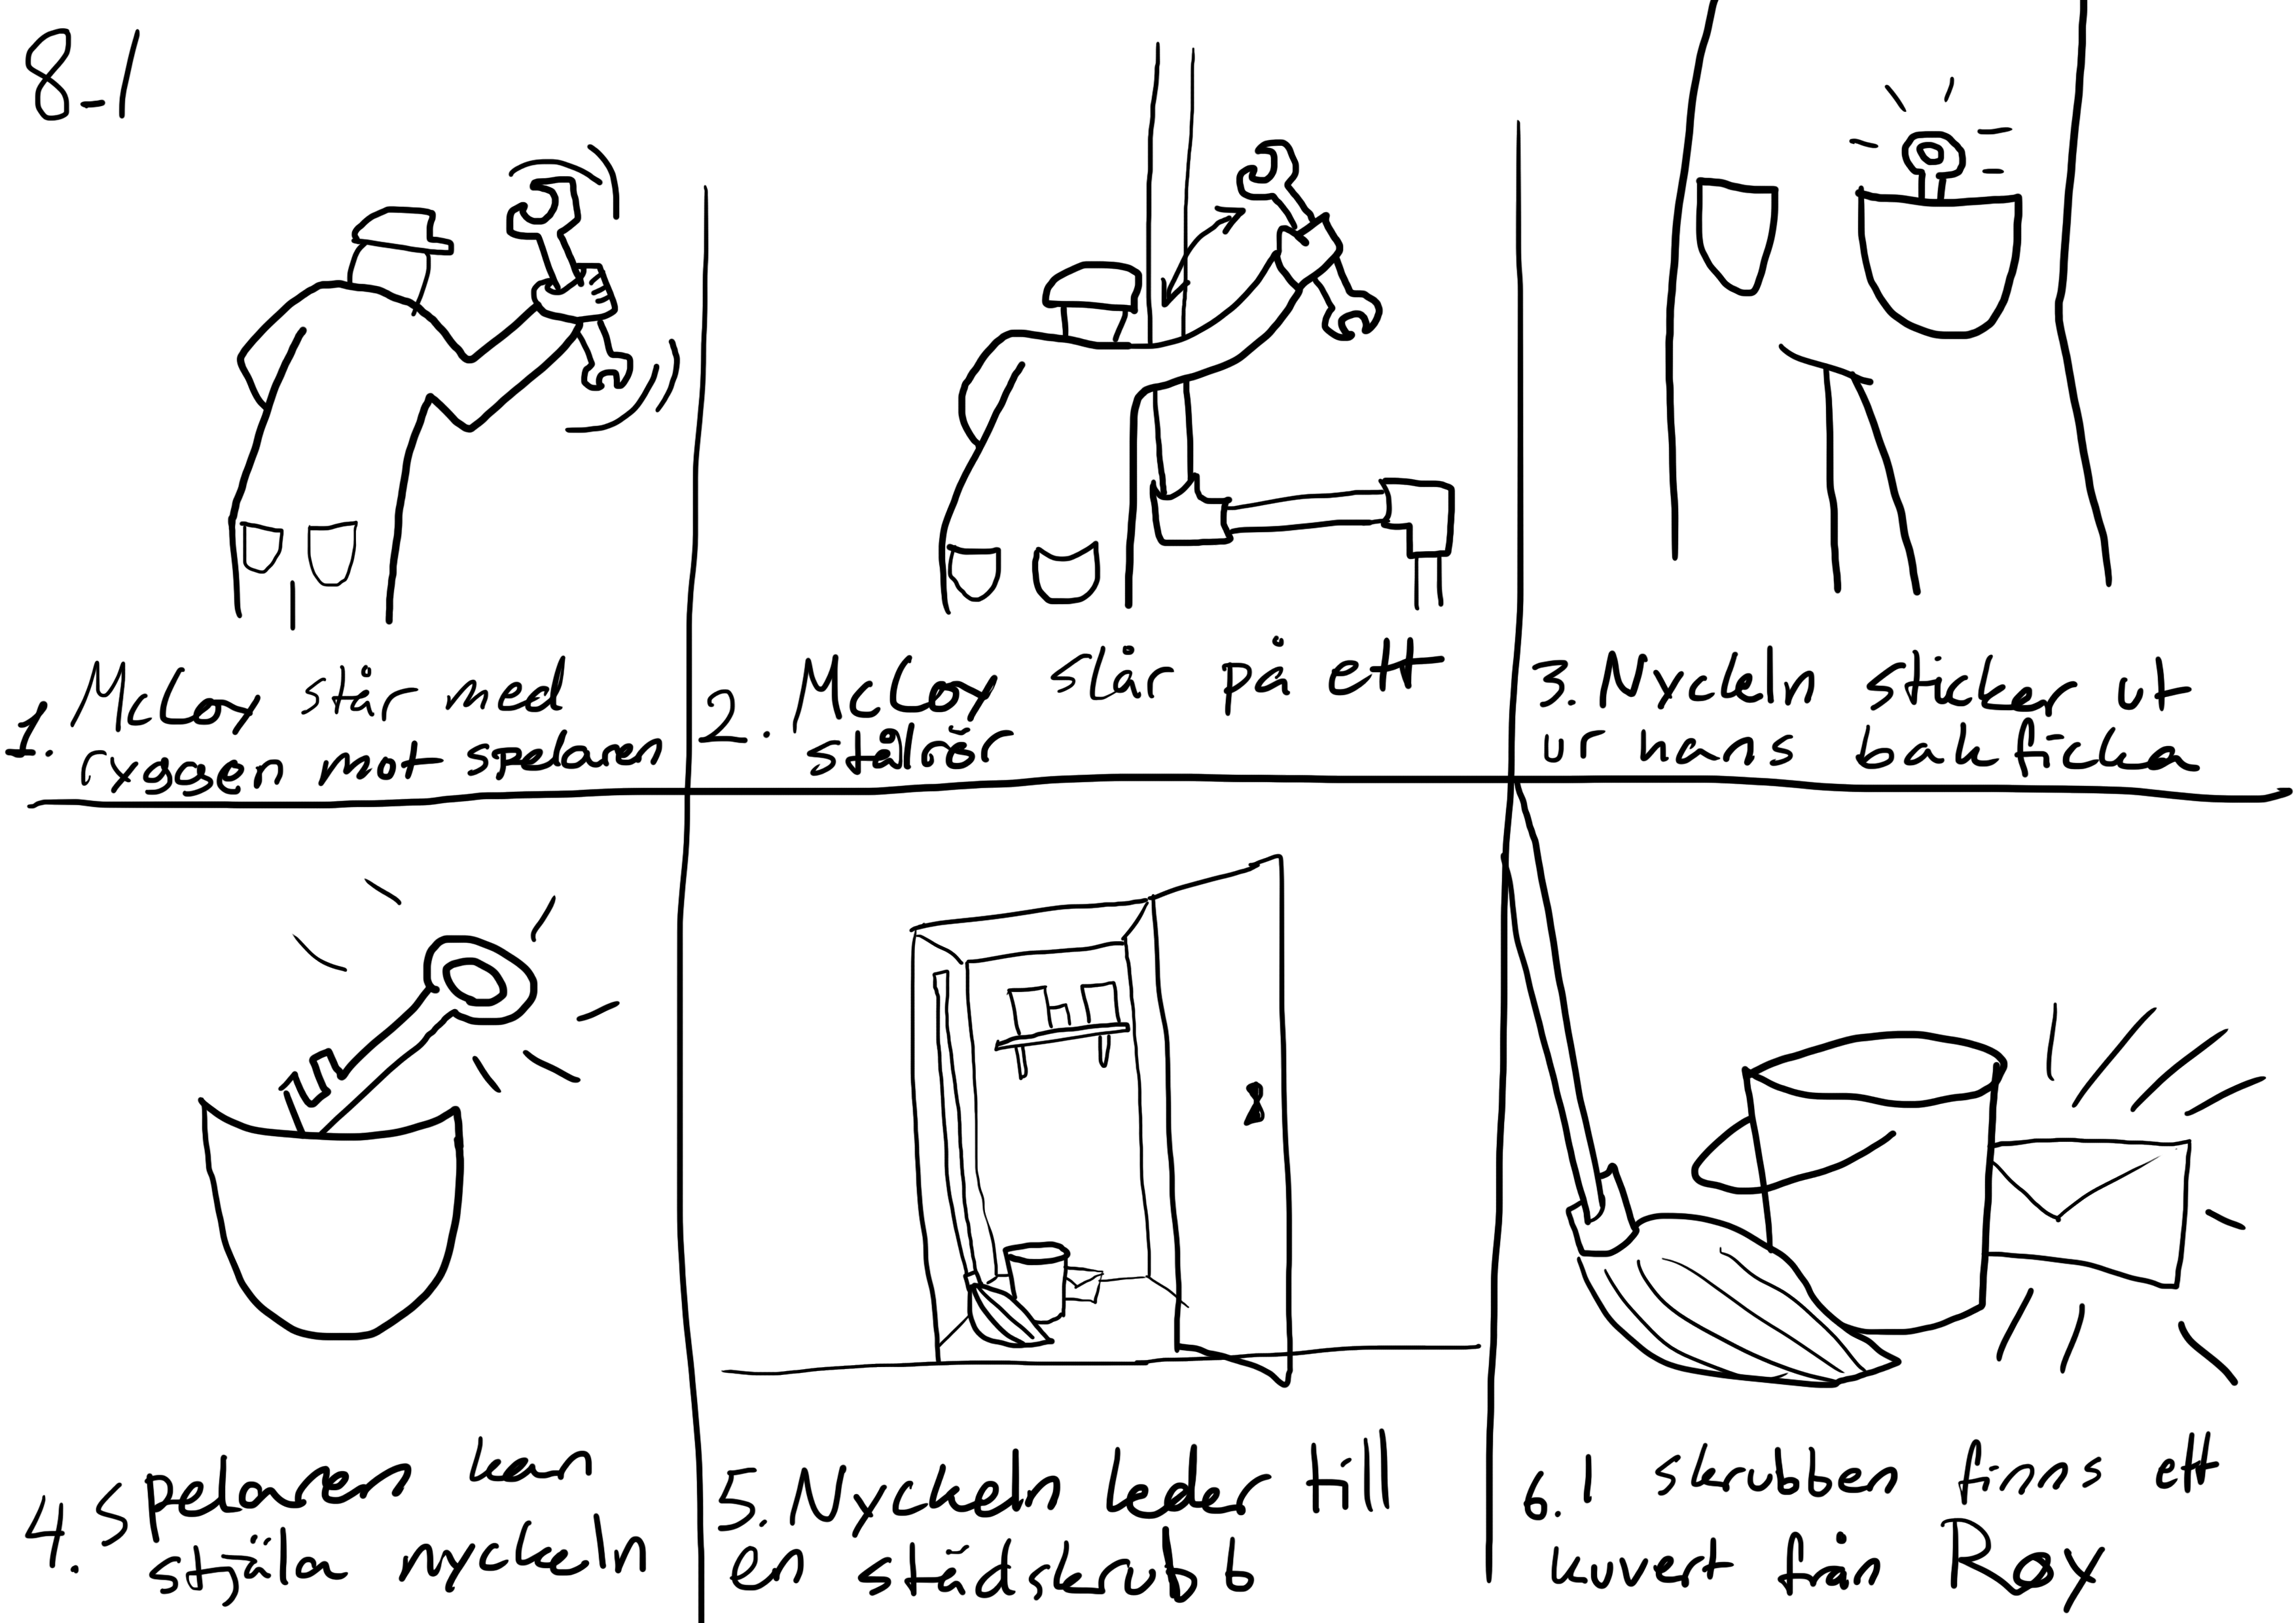 8-1
1. McCoy står med
ryggen mot spelaren
2. McCoy slår på ett
stålrör
3. Nyckeln sticker ut
ur hans bakficka
4. Spelaren kan
stjäla nyckeln
5. Nyckeln leder till
en städskrubb
6. I skrubben finns ett
kuvert från Roy